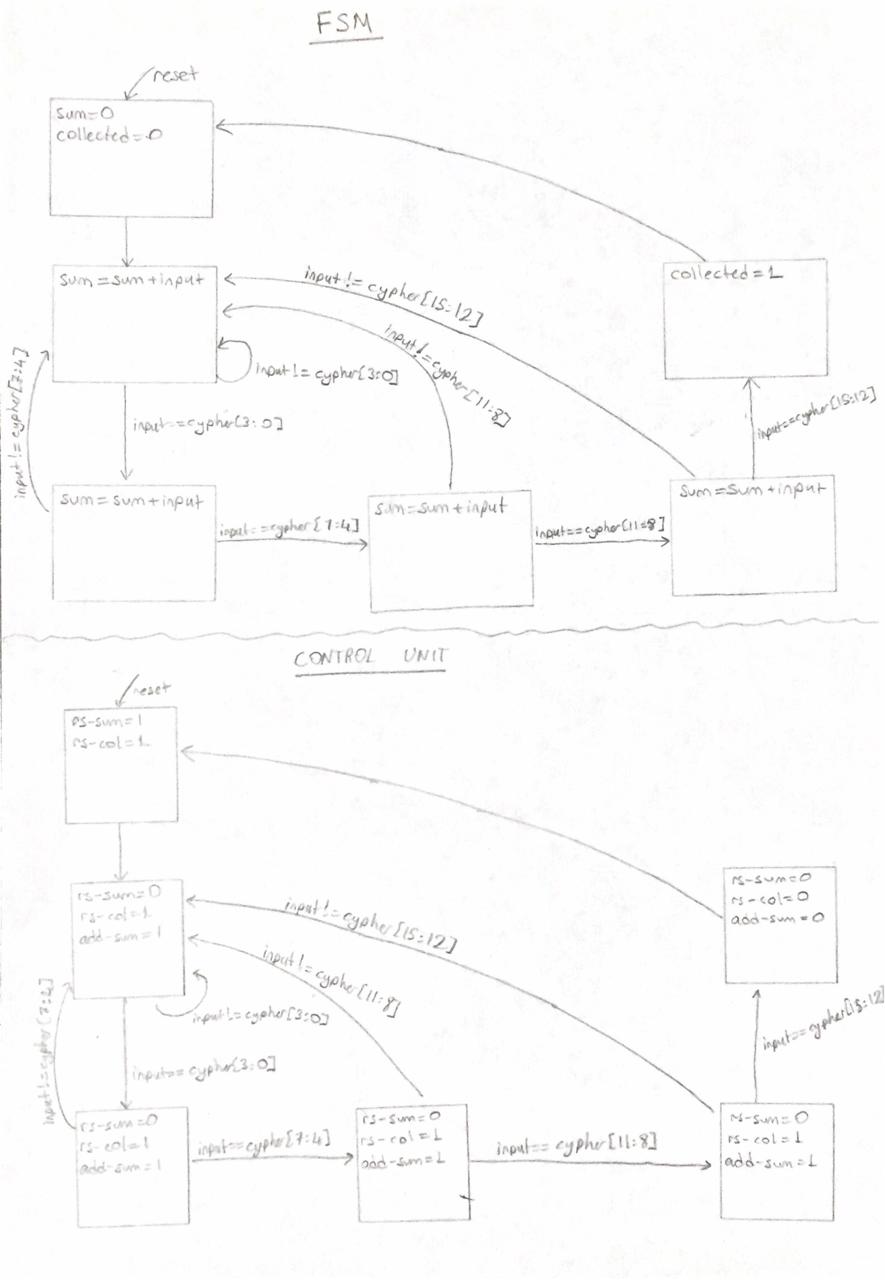 FSM
reset
sum=0
collected=0
sum=sum+input
input!=cypher[15:12]
input!=cypher[11:8]
input!=cypher[3:0]
input!=cypher[7:4]
input==cypher[3:0]
collected=1
input==cypher[15:12]
sum=sum+input
input==cypher[7:4]
sum=sum+input
input==cypher[11:8]
sum=sum+input
CONTROL UNIT
reset
rs-sum=1
rs-col=1
rs-sum=0
rs-col=1
add-sum=1
input!=cypher[15:12]
input!=cypher[11:8]
input!=cypher[3:0]
input!=cypher[7:4]
input==cypher[3:0]
rs-sum=0
rs-col=0
add-sum=0
input==cypher[15:12]
rs-sum=0
rs-col=1
add-sum=1
input==cypher[7:4]
rs-sum=0
rs-col=1
add-sum=1
input==cypher[11:8]
rs-sum=0
rs-col=1
add-sum=1